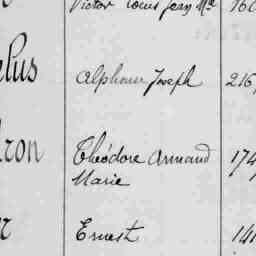 Victor Louis Jean Me 160
elus Alphonse Joseph 216
Théodore Armand 174
Marie
Ernest 141